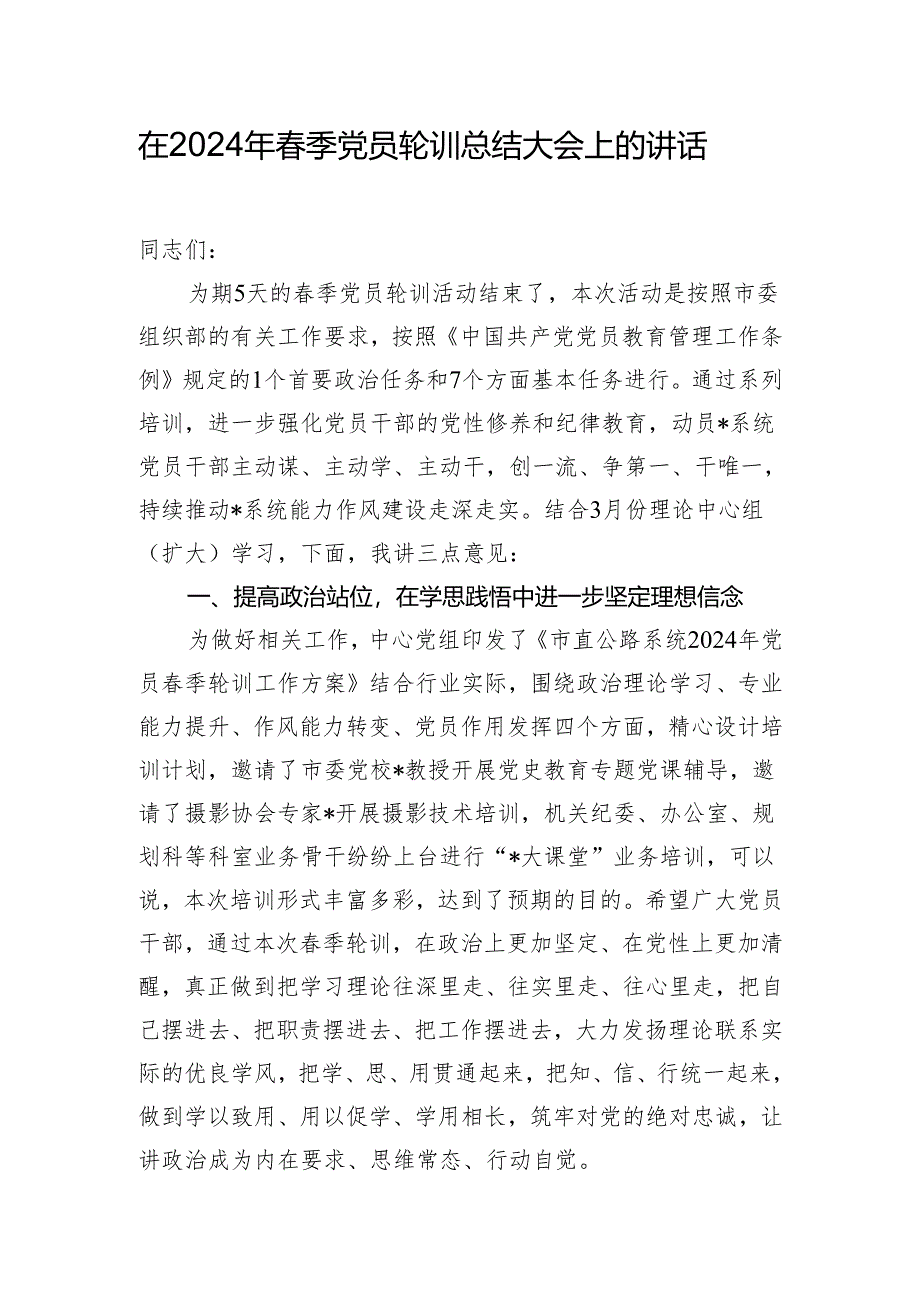 在2024年春季党员轮训总结大会上的讲话
同志们：
为期5天的春季党员轮训活动结束了，本次活动是按照市委
组织部的有关工作要求，按照《中国共产党党员教育管理工作条
例》规定的1个首要政治任务和7个方面基本任务进行。通过系列
培训，进一步强化党员干部的党性修养和纪律教育，动员*系统
党员干部主动谋、主动学、主动干，创一流、争第一、干唯一，
持续推动*系统能力作风建设走深走实。结合3月份理论中心组
（扩大）学习，下面，我讲三点意见：
一、提高政治站位，在学思践悟中进一步坚定理想信念
为做好相关工作，中心党组印发了《市直公路系统2024年党
员春季轮训工作方案》结合行业实际，围绕政治理论学习、专业
能力提升、作风能力转变、党员作用发挥四个方面，精心设计培
训计划，邀请了市委党校*教授开展党史教育专题党课辅导，邀
请了摄影协会专家*开展摄影技术培训，机关纪委、办公室、规
划科等科室业务骨干纷纷上台进行“*大课堂”业务培训，可以
说，本次培训形式丰富多彩，达到了预期的目的。希望广大党员
干部，通过本次春季轮训，在政治上更加坚定、在党性上更加清
醒，真正做到把学习理论往深里走、往实里走、往心里走，把自
己摆进去、把职责摆进去、把工作摆进去，大力发扬理论联系实
际的优良学风，把学、思、用贯通起来，把知、信、行统一起来，
做到学以致用、用以促学、学用相长，筑牢对党的绝对忠诚，让
讲政治成为内在要求、思维常态、行动自觉。